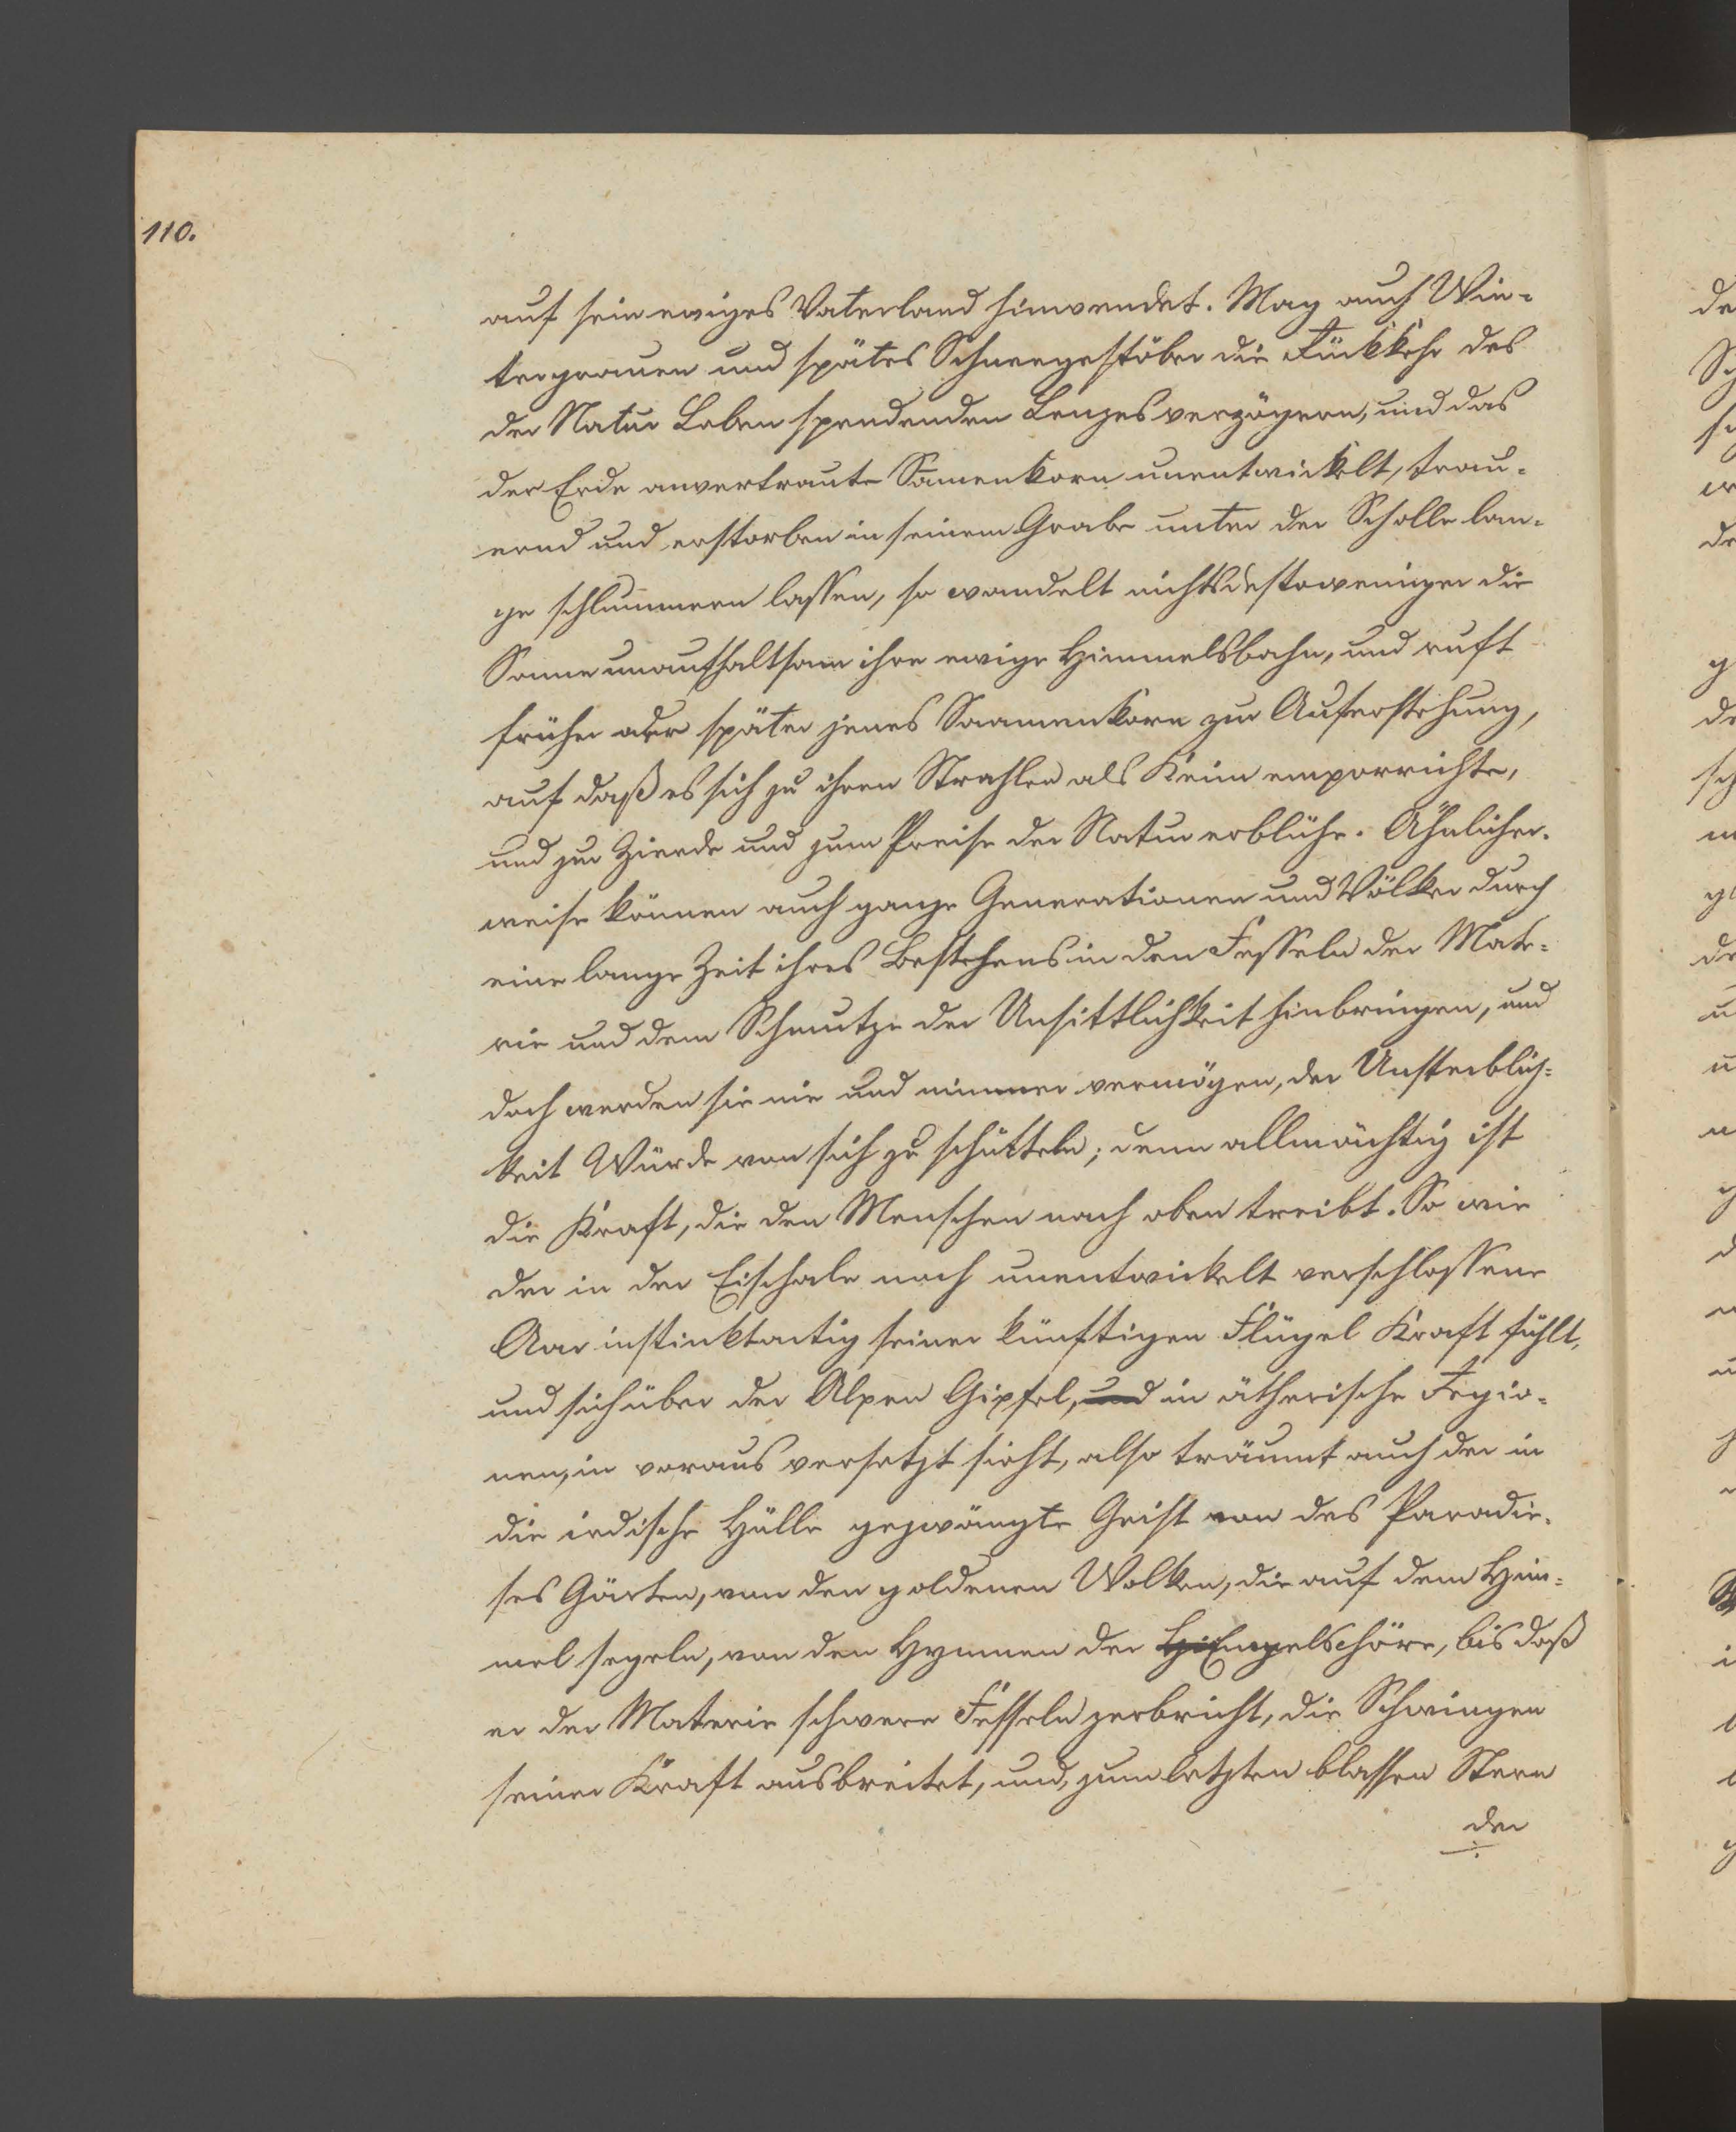 110.
auf sein ewiges Vaterland hinwendet. Mag auch Win-
tergrauen und spätes Schneegestöber die Rückkehr des
der Natur Leben spendenden Lenzes verzögern, und das
der Erde anvertraute Samenkorn unentwickelt, trau-
ernd und erstorben in seinem Grabe unter der Scholle lan-
ge schlummern lassen, so wandelt nichtsdestoweniger die
Sonne unaufhaltsam ihre ewige Himmelsbahn, und ruft
früher oder später jenes Saamenkorn zur Auferstehung,
auf daß es sich zu ihren Strahlen als Keim emporrichte,
und zur Zierde und zum Preise der Natur erblühe. Ähnlicher-
weise können auch ganze Generationen und Völker durch
eine lange Zeit ihres Bestehens in den Fesseln der Mate-
rie und dem Schmutze der Unsittlichkeit hinbringen, und
doch werden sie nie und nimmer vermögen, der Unsterblich-
keit Würde von sich zu schütteln; denn allmächtig ist
die Kraft, die den Menschen nach oben treibt. So wie
der in der Eischale noch unentwickelt verschlossene
Aar instinktartig seiner künftigen Flügel Kraft fühlt,
und sich über der Alpen Gipfel, und in ätherische Regio-
nen, im voraus versetzt sieht, also träumt auch der in
die irdische Hülle gezwängte Geist von des Paradie-
ses Gärten, von den goldenen Wolken, die auf dem Him-
mel segeln, von den Hymnen der Hi Engelschöre, bis daß
er der Materie schwere Fesseln zerbricht, die Schwingen
seiner Kraft ausbreitet, und, zum letzten blassen Stern
der